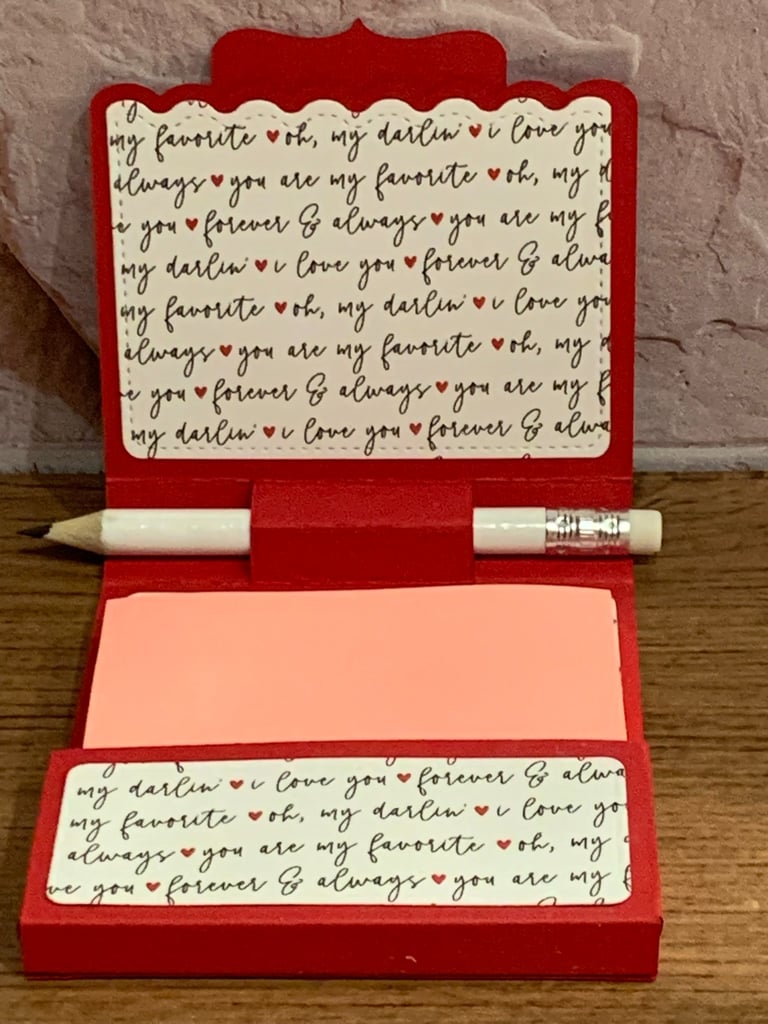 my favorite ♥ oh, my darlin' ♥ i love you
always ♥ you are my favorite ♥ oh, my
you ♥ forever & always ♥ you are my
my darlin' ♥ i love you ♥ forever &
my favorite ♥ oh, my darlin' ♥ i love you
always ♥ you are my favorite ♥ oh, my
you ♥ forever & always ♥ you are my
my darlin' ♥ i love you ♥ forever &
my darlin' ♥ i love you ♥ forever &
my favorite ♥ oh, my darlin' ♥ i love
always ♥ you are my favorite ♥ oh, my
you ♥ forever & always ♥ you are my